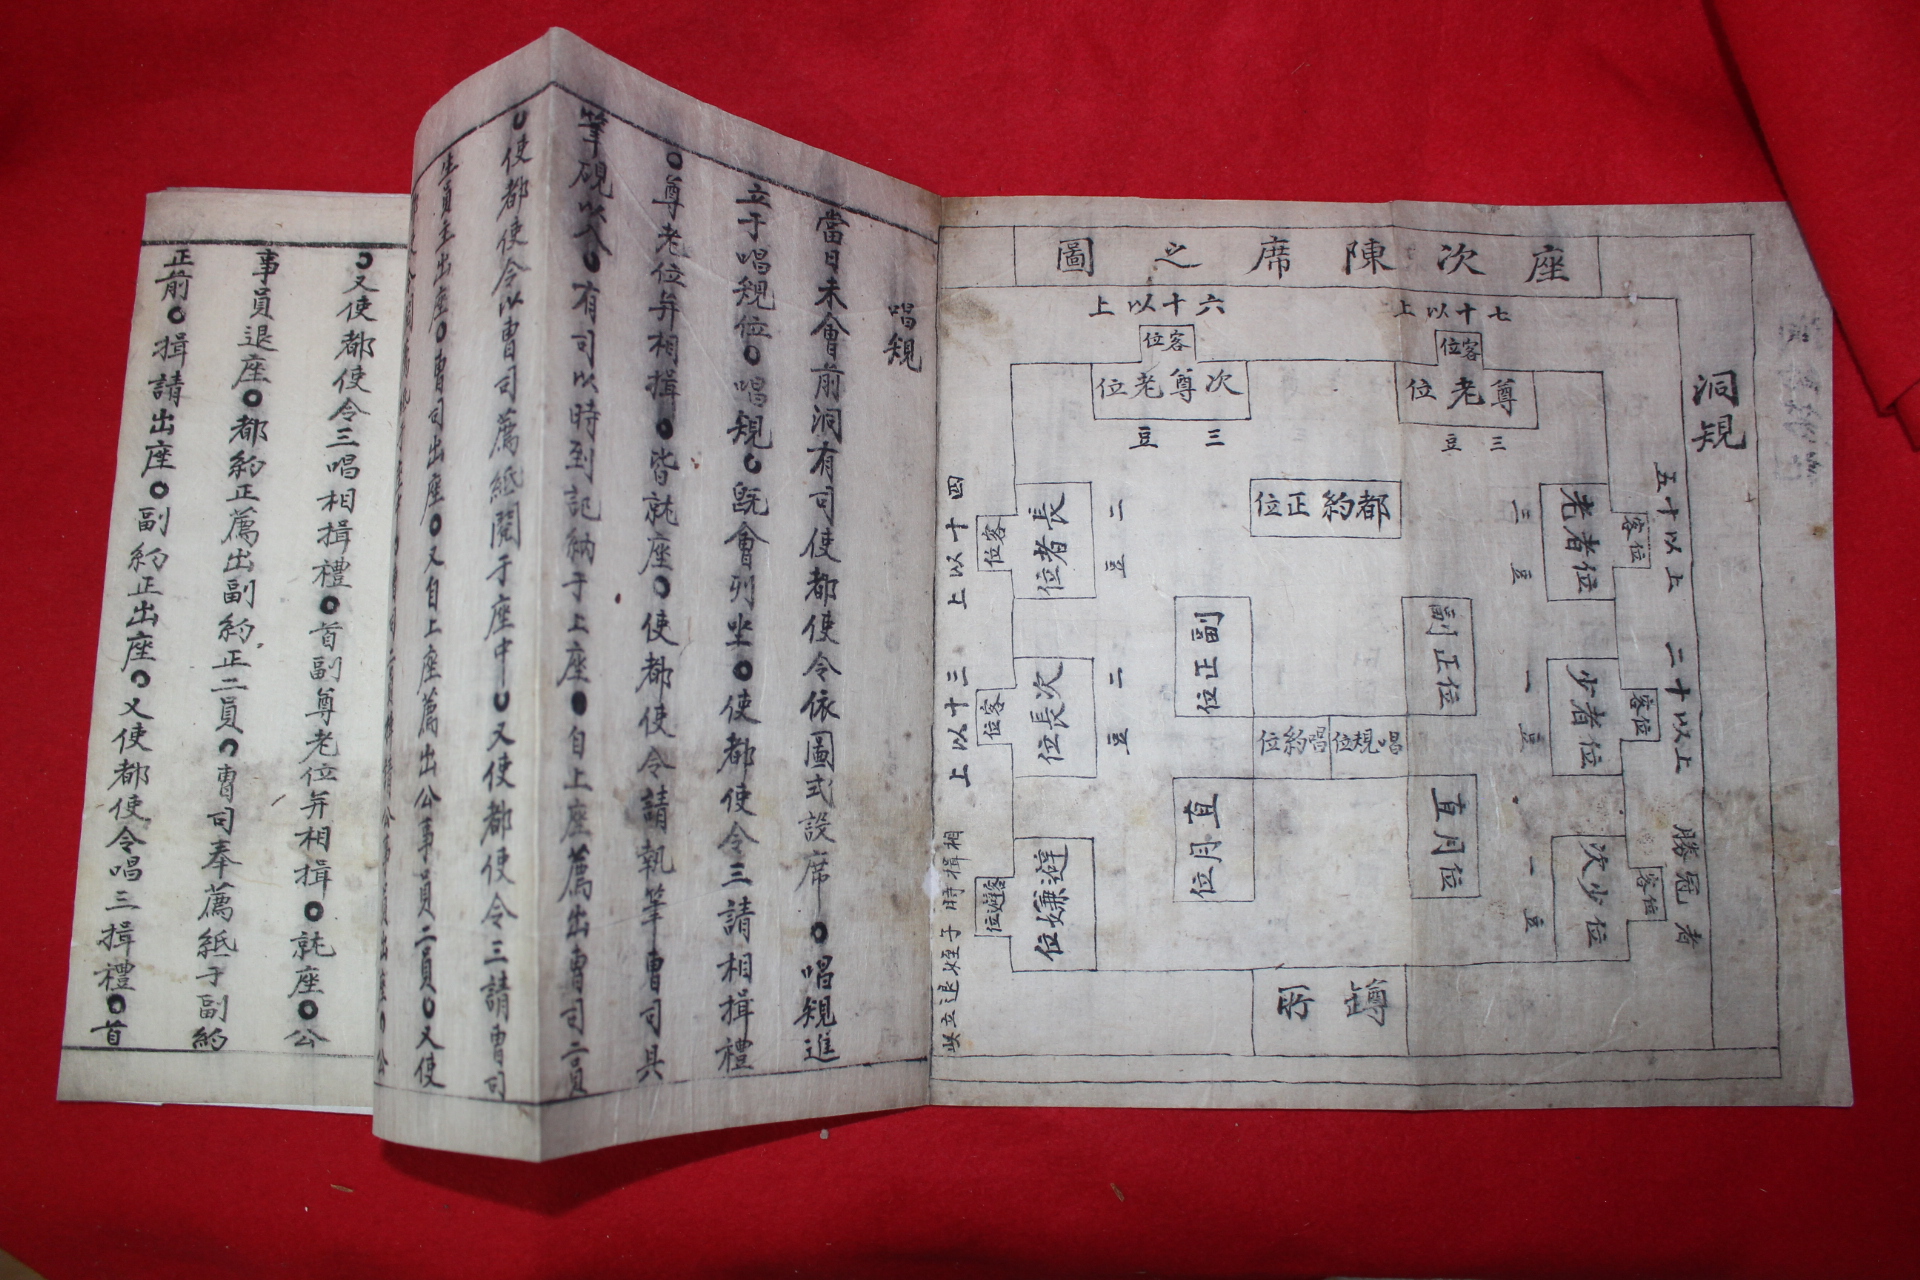 洞規
座次陳席之圖
七十以上
客位
尊老位
三豆
六十以上
客位
次尊老位
三豆
五十以上
客位
老者位
三豆
二十以上
客位
少者位
一豆
勝冠者
客位
次少位
一豆
都約正位
副正位
副正位
唱規位
唱約位
直月位
直月位
四十以上
客位
長者位
二豆
三十以上
客位
次長位
二豆
避嫌位
相揖時子姪退立
罇所
唱規
當日未會前洞有司使都使令依圖式設席○唱規進
立于唱規位○唱規○旣會列坐○使都使令三請相揖禮
○尊老位并相揖○皆就座○使都使令請執筆曺司具
筆硯以入○有司以時到記納于上座○自上座薦出曺司二員
○使都使令以曺司薦紙閱于座中○又使都使令三請曺司
生員主出座○曺司出座○又自上座薦出公事員二員○又使
○又使都使令三唱相揖禮○首副尊老位并相揖○就座○公
事員退座○都約正薦出副約正二員○曺司奉薦紙于副約
正前○揖請出座○副約正出座○又使都使令唱三揖禮○首